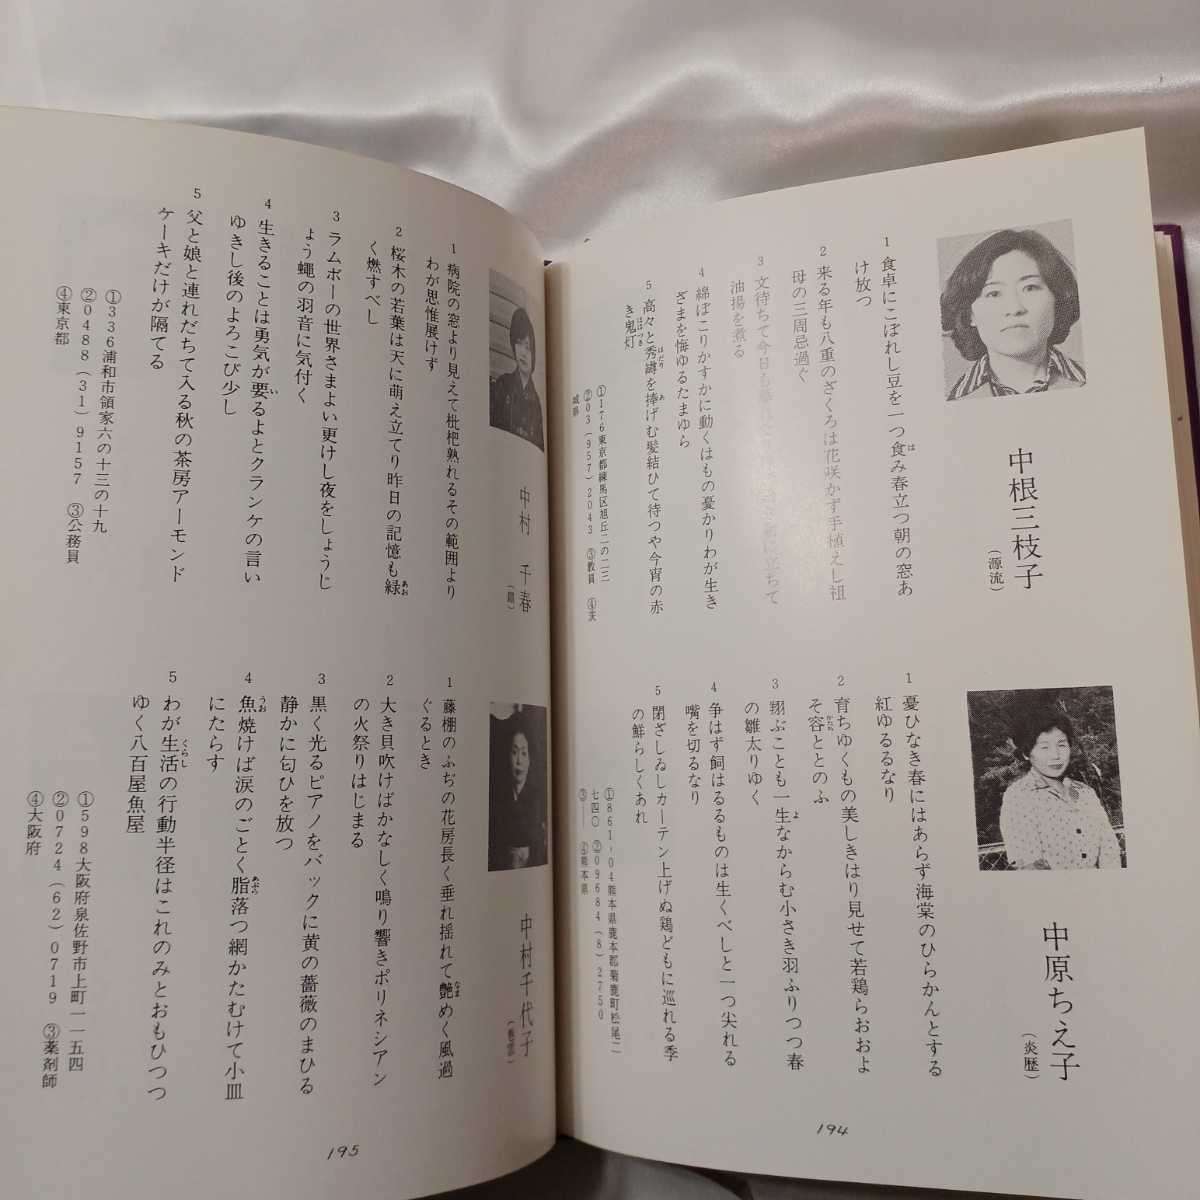 中根三枝子
(源流)
1 食卓にこぼれし豆を一つ食み春立つ朝の窓あ
け放つ
2 来る年も八重のざくろは花咲かず手植えし祖
母の三周忌過ぐ
3 文待ちて今日も暮れ
立ちて
油揚を煮る
4 綿ぼこりかすかに動くはもの憂かりわが生き
ざまを悔ゆるたまゆら
5 高々と秀を捧げむ髪結ひて待つや今宵の赤
き鬼灯
①176東京都練馬区旭丘二の二三
②03(957)2043 ③教員 ④茨
城県
中原ちえ子
(炎歴)
1 憂ひなき春にはあらず海棠のひらかんとする
紅ゆるるなり
2 育ちゆくもの美しきはり見せて若鶏らおおよ
そ容ととのふ
3 翔ぶことも一生なからむ小さき羽ふりつつ春
の雛太りゆく
4 争はず飼はるるものは生くべしと一つ尖れる
嘴を切るなり
5 閉ざしゐしカーテン上げぬ鶏どもに巡れる季
の鮮らしくあれ
①861-04熊本県鹿本郡菊鹿町松尾二
七四〇 ②09684(8)2750
③── ④熊本県
194
中村 千春
1 病院の窓より見えて枇杷熟れるその範囲より
わが思惟展けず
2 桜木の若葉は天に萌え立てり昨日の記憶も緑
く燃すべし
3 ラムボーの世界さまよい更けし夜をしょうじ
ょう蠅の羽音に気付く
4 生きることは勇気が要るよとクランケの言い
ゆきし後のよろこび少し
5 父と娘と連れだちて入る秋の茶房アーモンド
ケーキだけが隔てる
①336浦和市領家六の十三の十九
②0488(31)9157 ③公務員
④東京都
中村千代子
1 藤棚のふぢの花房長く垂れ揺れて艶めく風過
ぐるとき
2 大き貝吹けばかなしく鳴り響きポリネシアン
の火祭りはじまる
3 黒く光るピアノをバックに黄の薔薇のまひる
静かに匂ひを放つ
4 魚焼けば涙のごとく脂落つ網かたむけて小皿
にたらす
5 わが生活の行動半径はこれのみとおもひつつ
ゆく八百屋魚屋
①598大阪府泉佐野市上町一-一五四
②0724(62)0719 ③薬剤師
④大阪府
195